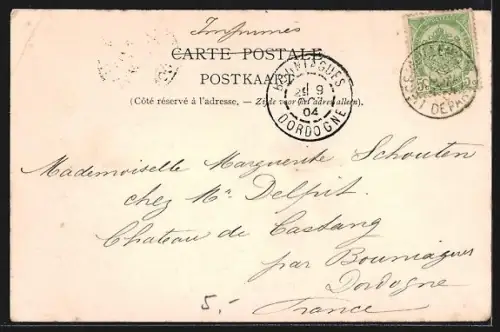 Imprimés
CARTE POSTALE
POSTKAART
(Côté réservé à l'adresse. — Zijde voor het adres alleen).
BOUNIAGUES
9
OCT
04
DORDOGNE
DEPART
Mademoiselle Marguerite Schouten
chez Mr. Delpit.
Chateau de Castang
par Bouniagues
Dordogne
France
5.-